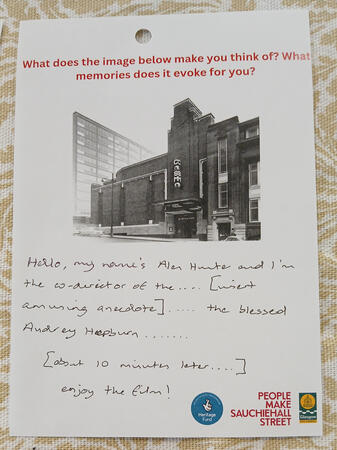 What does the image below make you think of? What
memories does it evoke for you?
Hello, my name's Allan Hunter and I'm
the co-director of the .... [insert
amusing anecdote] ..... the blessed
Audrey Hepburn .......
[about 10 minutes later....]
enjoy the film!
Heritage
Fund
PEOPLE
MAKE
SAUCHIEHALL
STREET
Glasgow